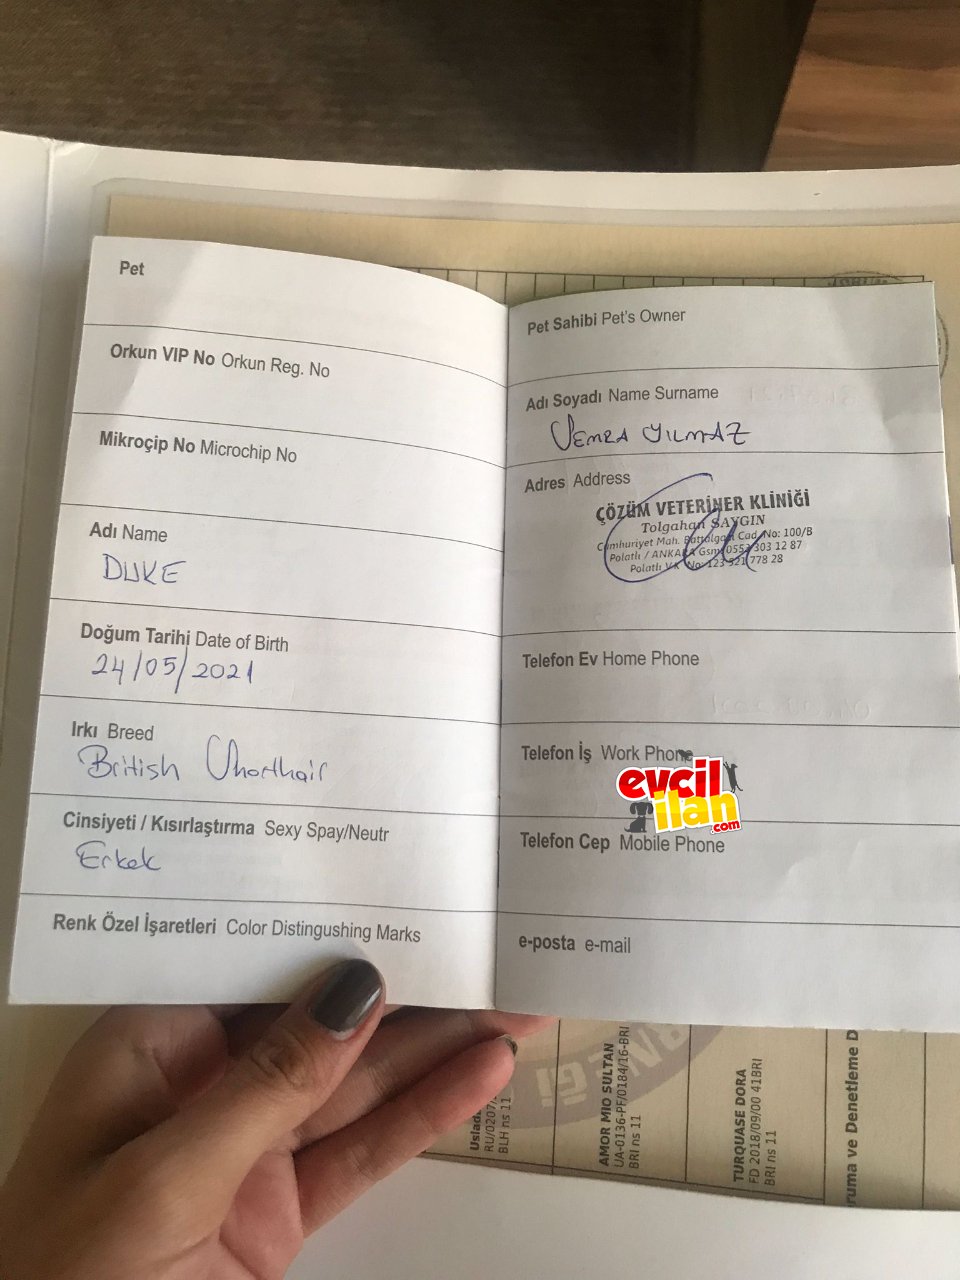 Pet
Orkun VIP No Orkun Reg. No
Mikroçip No Microchip No
Adı Name
DUKE
Doğum Tarihi Date of Birth
24/05/2021
Irkı Breed
British Shorthair
Cinsiyeti / Kısırlaştırma Sexy Spay/Neutr
Erkek
Renk Özel İşaretleri Color Distingushing Marks
Pet Sahibi Pet's Owner
Adı Soyadı Name Surname
YILMAZ
Adres Address
ÇÖZÜM VETERİNER KLİNİĞİ
Tolgahan SAYGIN
Cumhuriyet Mah. Cad. No: 100/B
Polatlı / ANKARA Gsm: 0553 303 12 87
Polatlı V.K. No: 123 521 778 28
Telefon Ev Home Phone
Telefon İş Work Phone
evcil
ilan
.com
Telefon Cep Mobile Phone
e-posta e-mail
RU/0207/
BLH ns 11
AMOR MIO SULTAN
UA-0136-PF/0184/16-BRI
BRI ns 11
TURQUASE DORA
FD 2018/09/00 41BRI
BRI ns 11
ruma ve Denetleme D
RNEĞİ